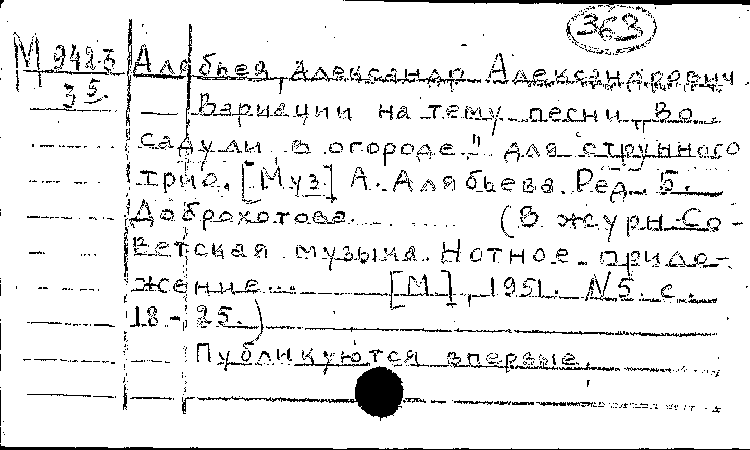 363
М 942-3 Алябьев, Александр Александрович.
35. Вариации на тему песни „Во
саду ли в огороде" для струнного
трио. [Муз.] А. Алябьева. Ред. Б.
Доброхотова. (В журн. Со-
ветская музыка. Нотное прило-
жение... [М], 1951. N5. с.
18-25.)
Публикуются впервые.